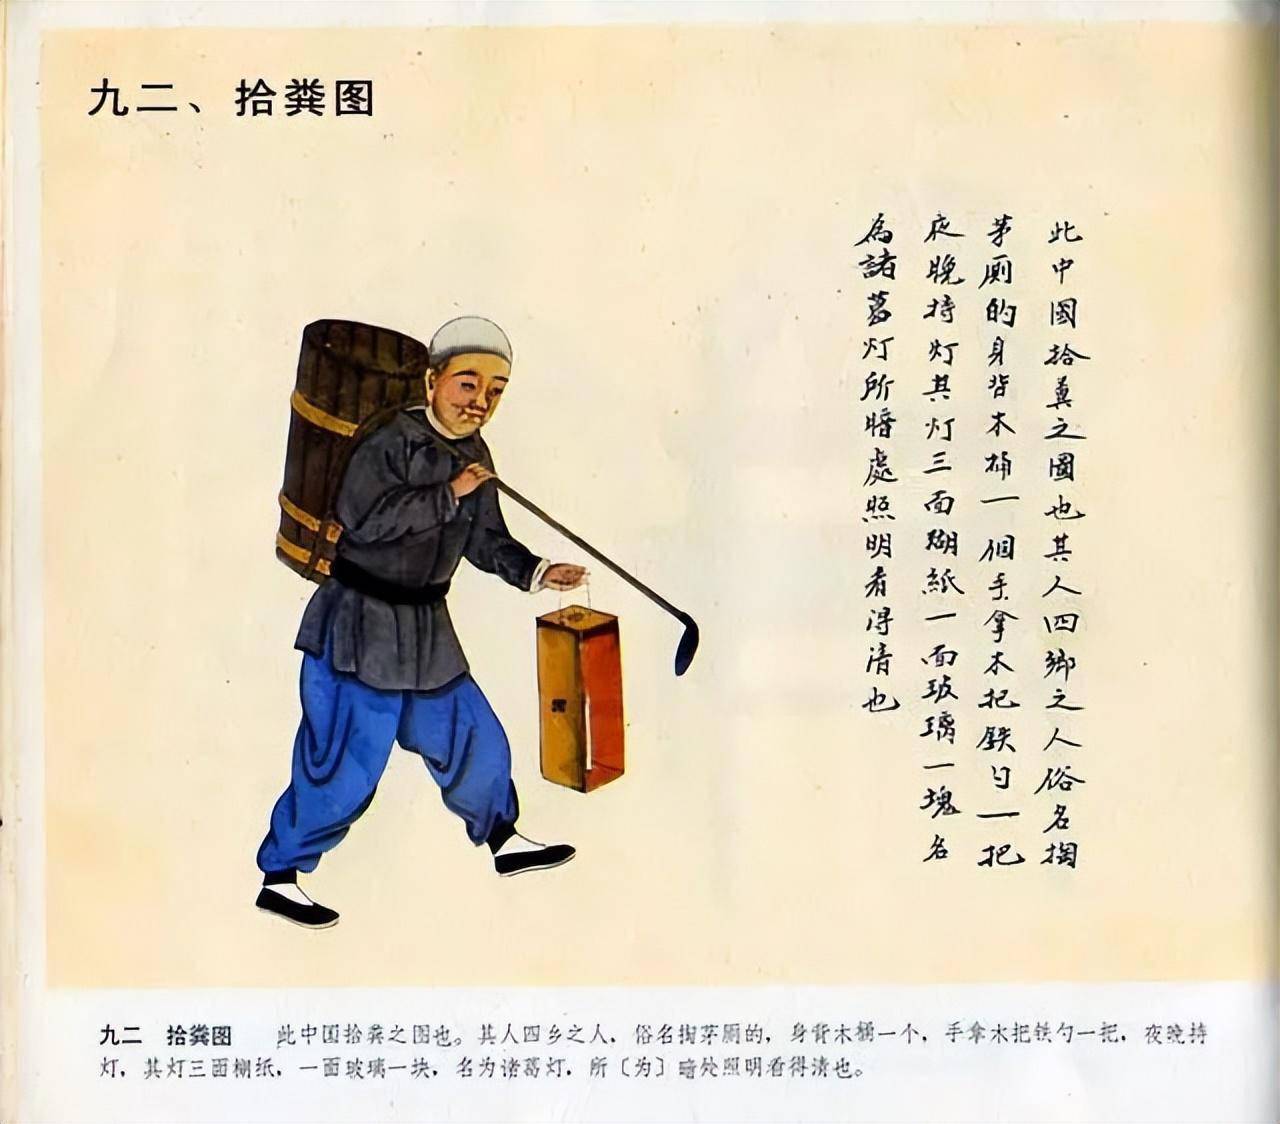 九二、拾粪图
此中國拾糞之圖也其人四鄉之人俗名掏
茅厠的身背木桶一個手拿木把鉄勺一把
夜晚持灯其灯三面糊紙一面玻璃一塊名
為諸葛灯所暗處照明看得清也
九二 拾粪图 此中国拾粪之图也。其人四乡之人，俗名掏茅厕的，身背木桶一个，手拿木把铁勺一把，夜晚持
灯，其灯三面糊纸，一面玻璃一块，名为诸葛灯，所〔为〕暗处照明看得清也。